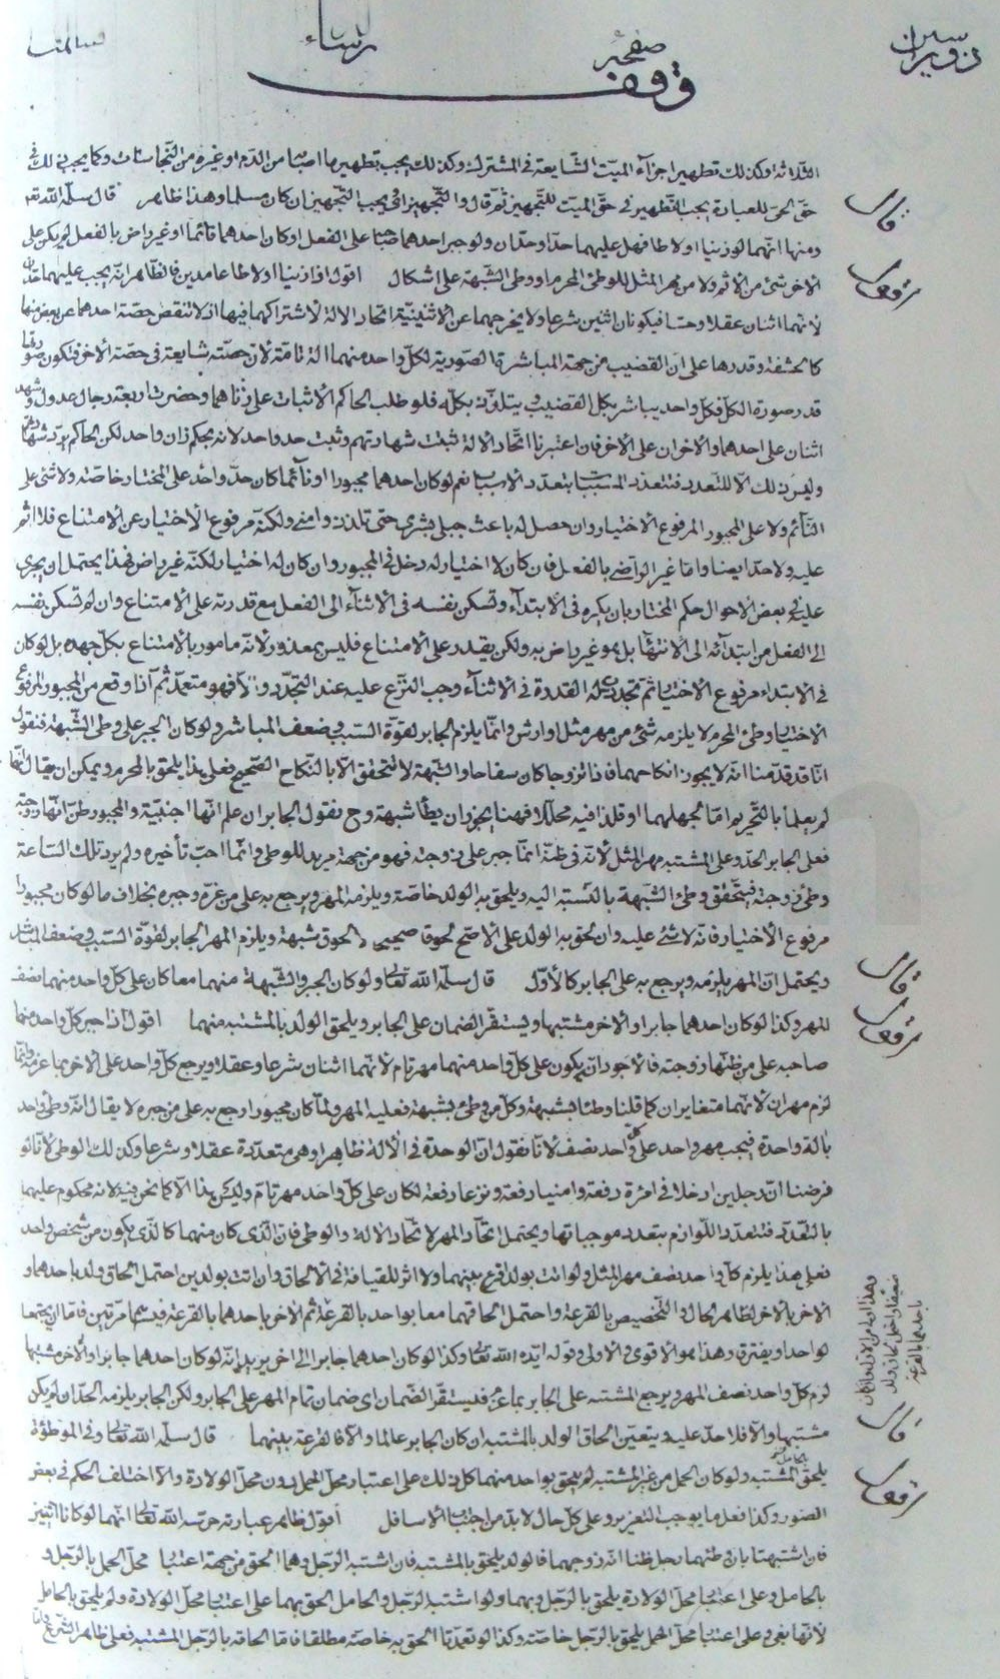 صفحه
وقف
الثلاثة وكذلك تطهير اجزاء الميت الشايعة في المشترك وكذلك يجب تطهيرها اصابها من الدم او غيره من النجاسات وكما يجب ذلك في
حق الحي للعبادة يجب التطهير في حق الميت للتجهيز ثم قال والتجهيز اي يجب التجهيز ان كان مسلما وهذا ظاهر قال سلمه الله تعالى
ومنها انهما لو زنيا اولاطا فهل عليهما حد او حدان ولو جبر احدهما صاحبه على الفعل او كان احدهما قائما او غير راض بالفعل لم يكن على
الاخر شئ من الاثم ولا من مهر المثل للوطئ المحرم او وطئ الشبهة على اشكال اقول اذا زنيا او لاطا عامدين فالظاهر انه يجب عليهما حدان
لانهما اثنان عقلا وحسا فيكونان اثنين شرعا ولا يخرجهما عن الاثنينية اتحاد الالة لاشتراكهما فيها اذ لا تنقص حصة احدهما عن بعض منها
كالحشفة وقدرها على ان القضيب من جهة المباشرة الصورية لكل واحد منهما الة تامة لان حصته شايعة في حصة الاخر فتكون صورتها
قدر صورة الكل فكل واحد يباشر بكل القضيب ويتلذذ بكله فلو طلب الحاكم الاثبات على زناهما وحضرت اربعة رجال عدول وشهد
اثنان على احدهما والاخران على الاخر فان اعتبرنا اتحاد الالة ثبتت شهادتهم وثبت حد واحد لانه يحكم زان واحد لكن الحاكم يرد شهادتهم
وليس ذلك الا للتعدد فتتعدد المسببات بتعدد الاسباب نعم لو كان احدهما مجبورا او نائما كان حد واحد على المختار خاصة ولا شئ على
النائم ولا على المجبور المرفوع الاختيار وان حصل له باعث جبلي بشرى حتى تلذذ وامنى ولكنه مرفوع الاختيار عن الامتناع فلا اثم
عليه ولا حد ايضا واما غير الراضي بالفعل فان كان لا اختيار له دخل في المجبور وان كان له اختيار لكنه غير راض فهذا يحتمل ان يجرى
عليه في بعض الاحوال حكم المختار بان يكره في الابتداء وتسكن نفسه في الاثناء الى الفعل مع قدرته على الامتناع وان لم تسكن نفسه
الى الفعل من ابتدائه الى الانتهاء بل هو غير راض به ولكن يقدر على الامتناع فليس بمعذور لانه مامور بالامتناع بكل جهده بل لو كان
في الابتداء مرفوع الاختيار ثم تجددت له القدرة في الاثناء وجب النزع عليه عند التجدد والا فهو متعمد ثم اذا وقع من المجبور المرفوع
الاختيار وطئ المحرم لا يلزمه شئ من مهر مثل او ارش وانما يلزم الجابر لقوة السبب وضعف المباشر ولو كان الجبر على وطئ الشبهة فنقول
انا قد قدمنا انه لا يجوز انكاحهما فاذا تزوجا كان سفاحا والشبهة لا تتحقق الا بالنكاح الصحيح فعلى هذا يلحق بالمحرم ويمكن ان يقال انهما
لم يعلما بالتحريم اما لجهلهما او قلدا فيه محللا فهنا يجوز ان يطأ شبهة وح نقول الجابر ان علم انها اجنبية والمجبور ظن انها زوجته
فعلى الجابر الحد وعلى المشتبه مهر المثل لانه في ظنه انما جبر على زوجته فهو من جهة مريد للوطئ وانما احب تأخيره ولم يرد تلك الساعة
وطئ زوجته فيتحقق وطئ الشبهة بالنسبة اليه ويلحق به الولد خاصة ويلزمه المهر ويرجع به على من غره وجبره بخلاف ما لو كان مجبورا
مرفوع الاختيار فانه لا شئ عليه وان لحق به الولد على الاصح لحوقا صحيحا لحوق شبهة ويلزم المهر الجابر لقوة السبب وضعف المباشر
ويحتمل ان المهر يلزمه ويرجع به على الجابر كالاول قال سلمه الله تعالى ولو كان الجبر والشبهة منهما معا كان على كل واحد منهما نصف
المهر وكذا لو كان احدهما جابرا والاخر مشتبها ويستقر الضمان على الجابر ويلحق الولد بالمشتبه منهما اقول اذا جبر كل واحد منهما
صاحبه على من ظنها زوجته فالاجود ان يكون على كل واحد منهما مهر تام لانهما اثنان شرعا وعقلا ويرجع كل واحد على الاخر بما غرمه وانما
لزم مهران لانهما متغايران كما قلنا وطئا بشبهة وكل من وطئ بشبهة فعليه المهر ولما كان مجبورا رجع به على من جبره لا يقال انه وطئ واحد
بالة واحدة فيجب مهر واحد على كل واحد نصف لانا نقول ان الوحدة في الالة ظاهرا وهى متعددة عقلا وشرعا وكذلك الوطئ لانا لو
فرضنا ان رجلين ادخلا في امرة رفعة وامنيا رفعة ونزعا رفعة لكان على كل واحد مهر تام ولم يكن هذا الا كما نحن فيه لانه محكوم عليهما
بالتعدد فتتعدد اللوازم بتعدد موجباتها ويحتمل اتحاد المهر لاتحاد الالة والوطئ فان الذي كان منهما كالذي يكون من شخص واحد
فعلى هذا يلزم كل واحد نصف مهر المثل ولو اتت بولد اقرع بينهما ولا اثر للقيافة في الالحاق وان اتت بولدين احتمل الحاق ولد باحدهما و
الاخر بالاخر لظاهر الحال والتخصيص بالقرعة واحتمل الحاقهما معا بواحد بالقرعة ثم الاخر باحدهما بالقرعة فيسهما مرتين فاما ان يجتمعا
لواحد او يفترقا وهذا هو الاقوى والاولى وقوله ايده الله تعالى وكذا لو كان احدهما جابرا الى اخر يريد انه لو كان احدهما جابرا والاخر مشتبها
لزم كل واحد نصف المهر ويرجع المشتبه على الجابر بما غرم فيستقر الضمان اي ضمان تمام المهر على الجابر ولكن الجابر يلزمه الحد ان لم يكن
مشتبها والا فلا حد عليه ويتعين الحاق الولد بالمشتبه ان كان الجابر عالما والا فالقرعة بينهما قال سلمه الله تعالى وفي الموطؤة
يلحق المشتبه ولو كان الحمل من غير المشتبه لم يلحق بواحد منهما كل ذلك على اعتبار محل الحمل دون محل الولادة والا اختلف الحكم في بعض
الصور وكذا فعل ما يوجب التعزير وعلى كل حال لابد من اجتناب الاسافل اقول ظاهر عبارته حرسه الله تعالى انهما لو كانا اثنين
فان اشتبهتا بان وطئهما رجل ظنا انه زوجهما فالولد يلحق بالمشتبه فان اشتبه الرجل وهما الحق من جهة اعتبار محل الحمل بالرجل و
بالحامل وعلى اعتبار محل الولادة يلحق بالرجل وبهما ولو اشتبه الرجل والحامل الحق بهما على اعتبار محل الولادة ولم يلحق بالحامل
لانها بغى وعلى اعتبار محل الحمل يلحق بالرجل خاصة وكذا لو تعمدتا الحق به خاصة مطلقا فاما الحاقه بالرجل المشتبه فعلى ظاهر الشرع واما
قال
قال
قال